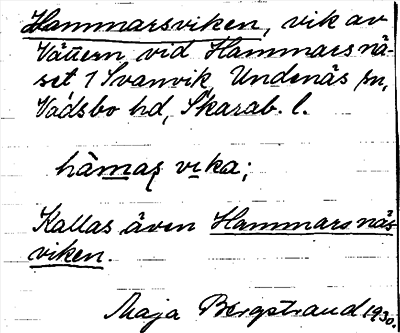 Hammarsviken, vik av
Vättern vid Hammarsnä-
set 1 Svanvik, Undenäs sn,
Vadsbo hd, Skarab. l.
hàmaʂ vika;
Kallas även Hammarsnäs-
viken.
Maja Bergstrand 1930.